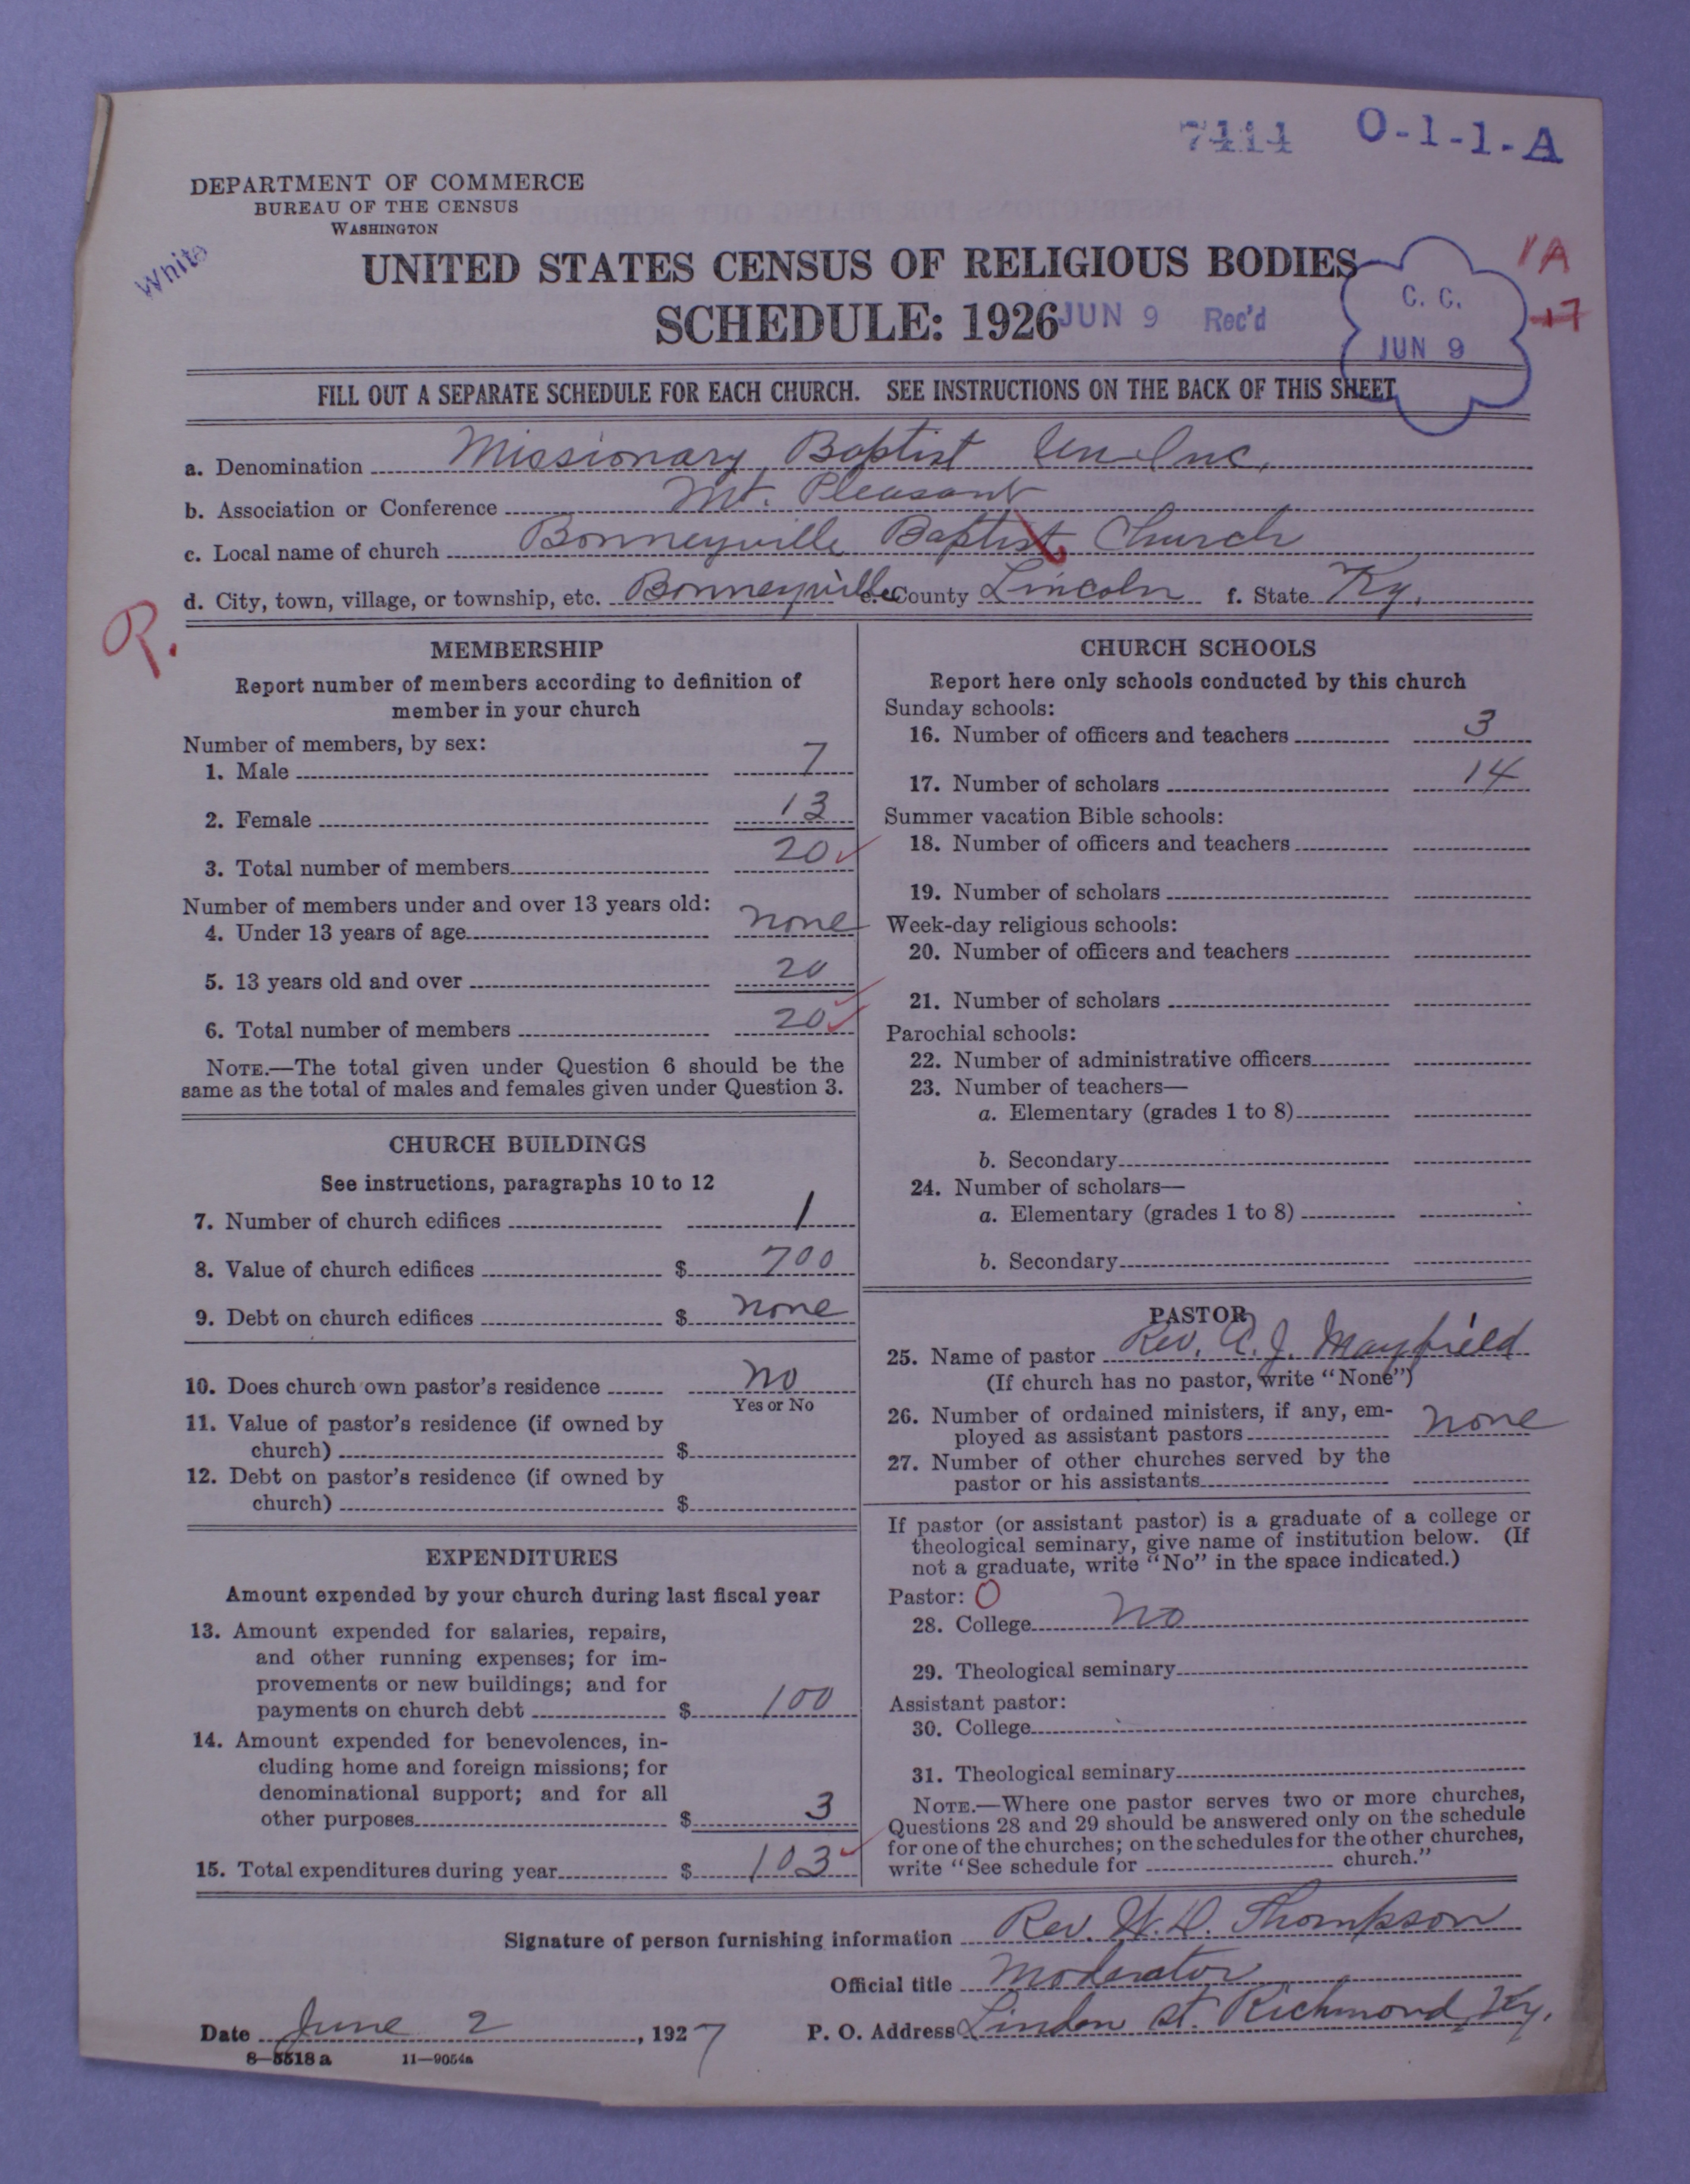 7414 O-1-1-A
DEPARTMENT OF COMMERCE
BUREAU OF THE CENSUS
WASHINGTON
White
UNITED STATES CENSUS OF RELIGIOUS BODIES
1A
SCHEDULE: 1926 JUN 9 Rec'd
C. C.
JUN 9
17
FILL OUT A SEPARATE SCHEDULE FOR EACH CHURCH. SEE INSTRUCTIONS ON THE BACK OF THIS SHEET
a. Denomination Missionary Baptist Un Inc.
b. Association or Conference Mt. Pleasant
c. Local name of church Bonneyville Baptist Church
d. City, town, village, or township, etc. Bonneyville e. County Lincoln f. State Ky.
R.
MEMBERSHIP
Report number of members according to definition of
member in your church
Number of members, by sex:
1. Male 7
2. Female 13
3. Total number of members 20
Number of members under and over 13 years old:
4. Under 13 years of age none
5. 13 years old and over 20
6. Total number of members 20
NOTE.—The total given under Question 6 should be the
same as the total of males and females given under Question 3.
CHURCH BUILDINGS
See instructions, paragraphs 10 to 12
7. Number of church edifices 1
8. Value of church edifices $ 700
9. Debt on church edifices $ none
10. Does church own pastor's residence no
Yes or No
11. Value of pastor's residence (if owned by
church) $
12. Debt on pastor's residence (if owned by
church) $
EXPENDITURES
Amount expended by your church during last fiscal year
13. Amount expended for salaries, repairs,
and other running expenses; for im-
provements or new buildings; and for
payments on church debt $ 100
14. Amount expended for benevolences, in-
cluding home and foreign missions; for
denominational support; and for all
other purposes $ 3
15. Total expenditures during year $ 103
CHURCH SCHOOLS
Report here only schools conducted by this church
Sunday schools:
16. Number of officers and teachers 3
17. Number of scholars 14
Summer vacation Bible schools:
18. Number of officers and teachers
19. Number of scholars
Week-day religious schools:
20. Number of officers and teachers
21. Number of scholars
Parochial schools:
22. Number of administrative officers
23. Number of teachers—
a. Elementary (grades 1 to 8)
b. Secondary
24. Number of scholars—
a. Elementary (grades 1 to 8)
b. Secondary
PASTOR
25. Name of pastor Rev. A. J. Mayfield
(If church has no pastor, write "None")
26. Number of ordained ministers, if any, em-
ployed as assistant pastors none
27. Number of other churches served by the
pastor or his assistants
If pastor (or assistant pastor) is a graduate of a college or
theological seminary, give name of institution below. (If
not a graduate, write "No" in the space indicated.)
Pastor: O
28. College no
29. Theological seminary
Assistant pastor:
30. College
31. Theological seminary
NOTE.—Where one pastor serves two or more churches,
Questions 28 and 29 should be answered only on the schedule
for one of the churches; on the schedules for the other churches,
write "See schedule for church."
Signature of person furnishing information Rev. W. D. Thompson
Official title Moderator
Date June 2, 1927 P. O. Address Linden st. Richmond, Ky.
8-5518 a 11-9054a